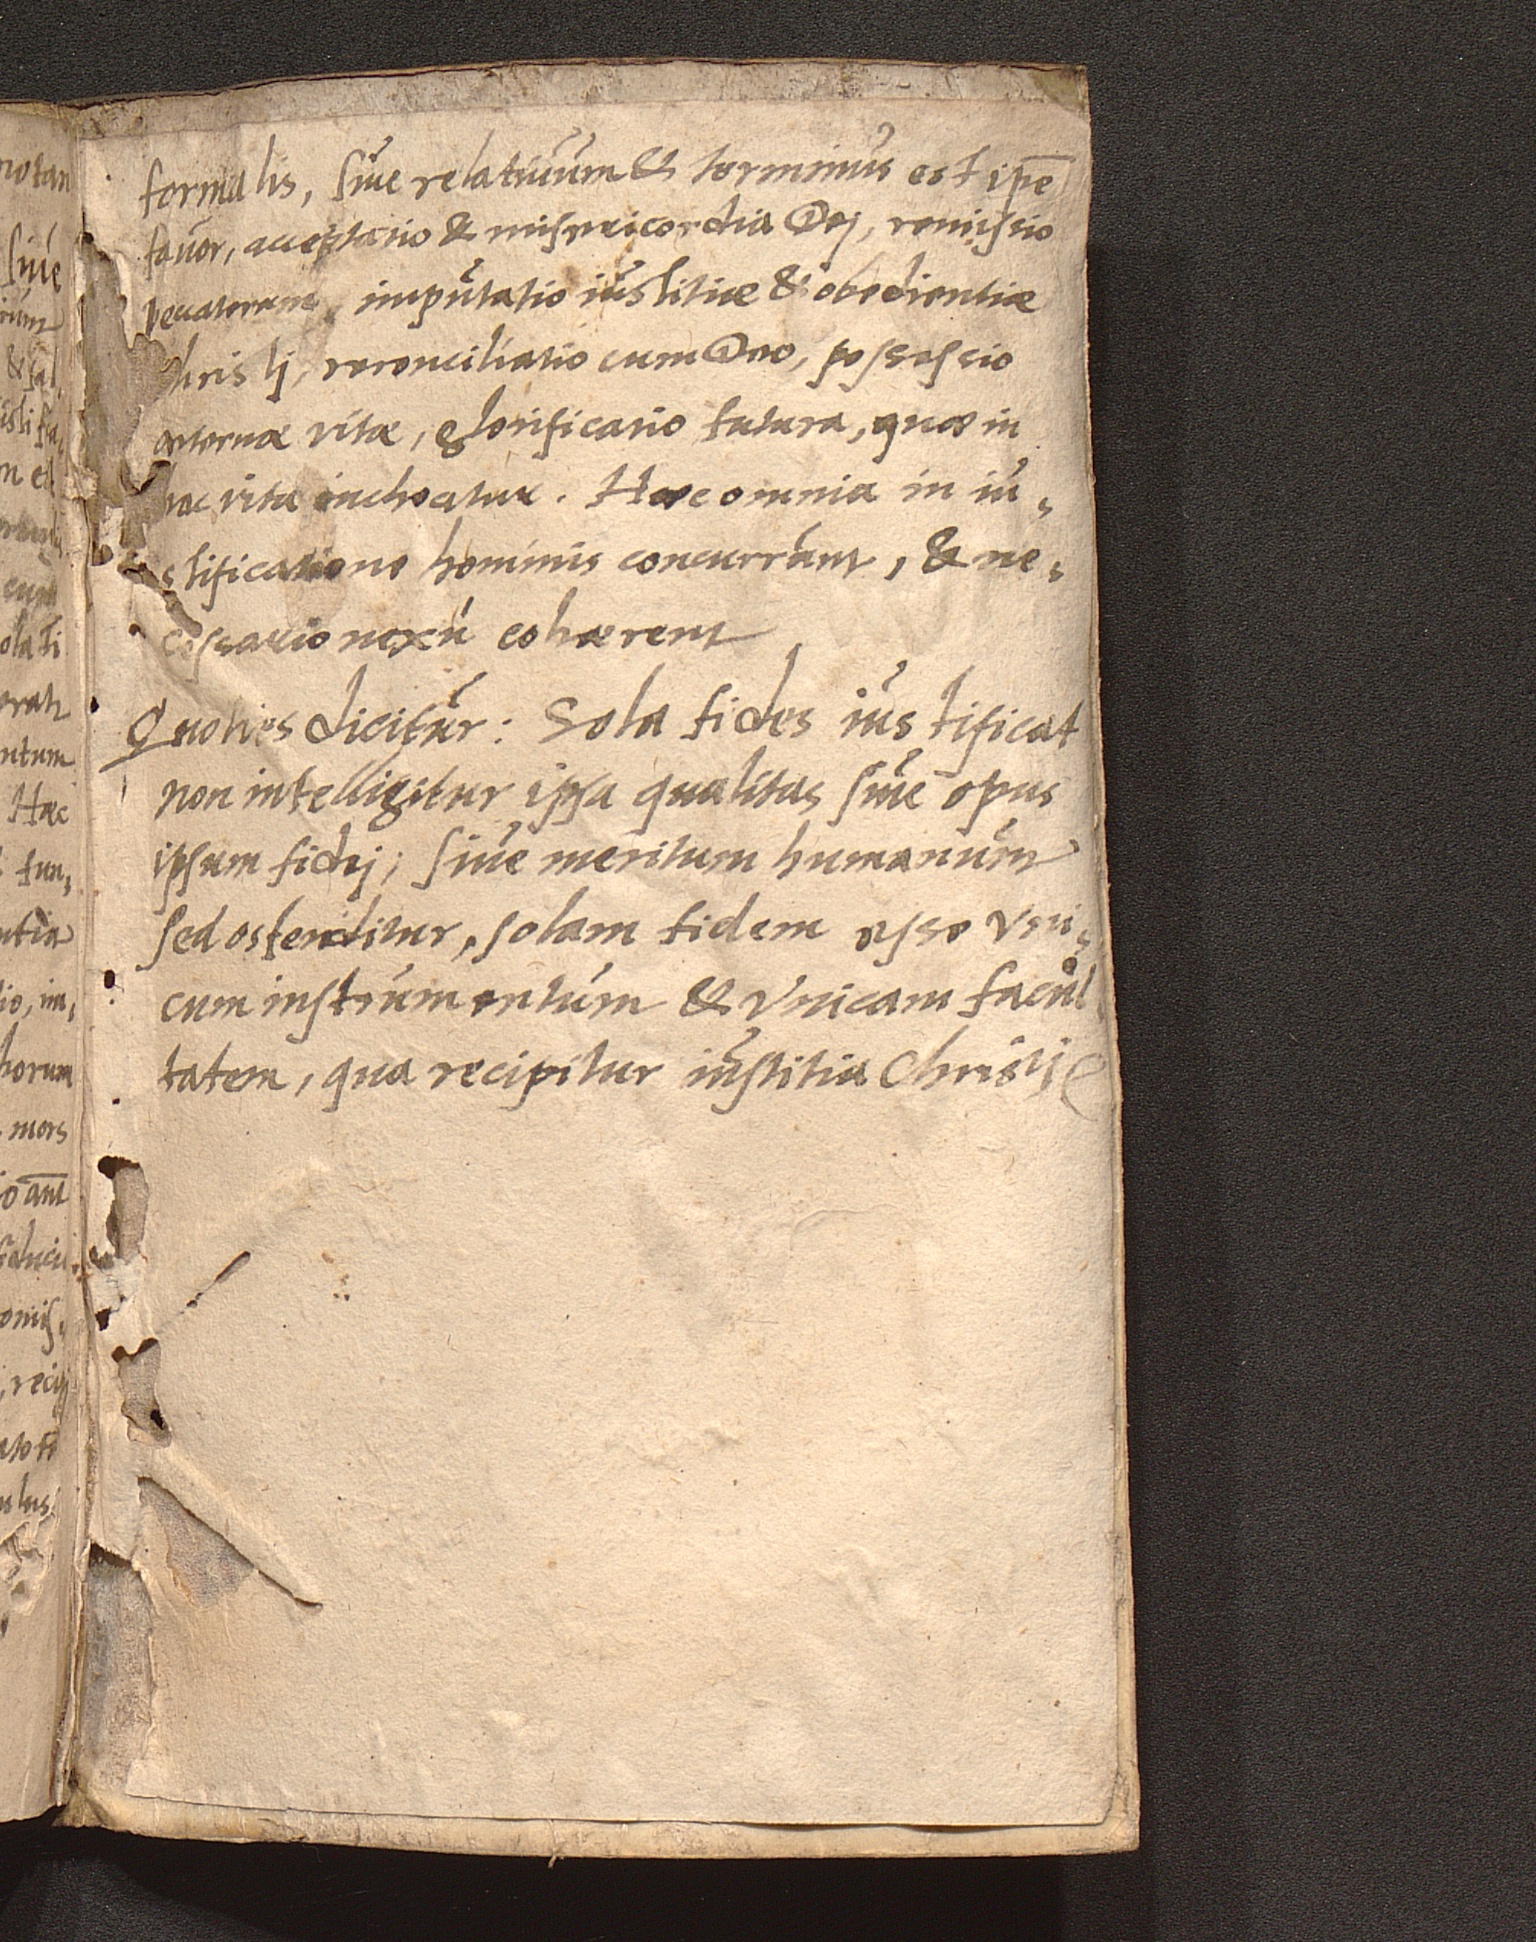 formalis, siue relatiuum & terminus est ipē
fauor, acceptatio & misericordia Dej, remissio
peccatorum, imputatio iustitiæ & obedientiæ
Christj, reconciliatio cum Deo, possessio
æternæ vitæ, glorificatio futura, quæ in
hac vita inchoatur. Hæc omnia in iu-
stificatione hominis concurrunt, & ne-
cessario nexu cohærent
Quoties dicitur: Sola fides iustificat
non intelligitur ipsa qualitas siue opus
ipsum fidej, siue meritum humanum
sed ostenditur, solam fidem esse vni-
cum instrumentum & vnicam facul
tatem, qua recipitur iustitia Christj